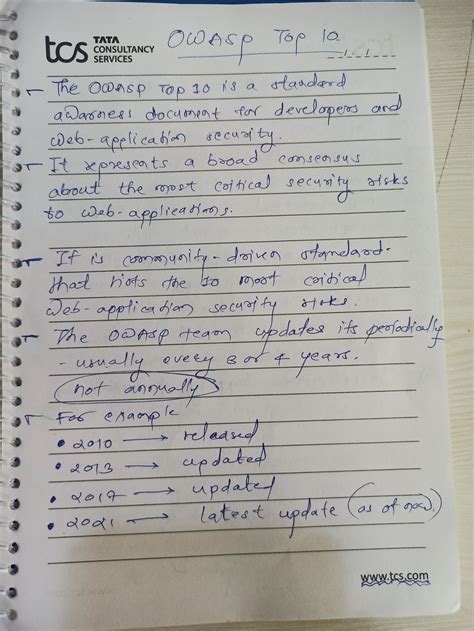 tcs TATA
CONSULTANCY
SERVICES
OWASP Top 10
- The OWASP TOP 10 is a standard
awarness document for developers and
web-application security.
- It represents a broad consensus
about the most critical security risks
to web-applications.
- It is community-driven standard.
that lists the 10 most critical
web-application security risks.
- The OWASP team updates its periodically
- usually every 3 or 4 years.
not annually
- For example
• 2010 → released
• 2013 → updated
• 2017 → updated
• 2021 → latest update (as of now)
www.tcs.com